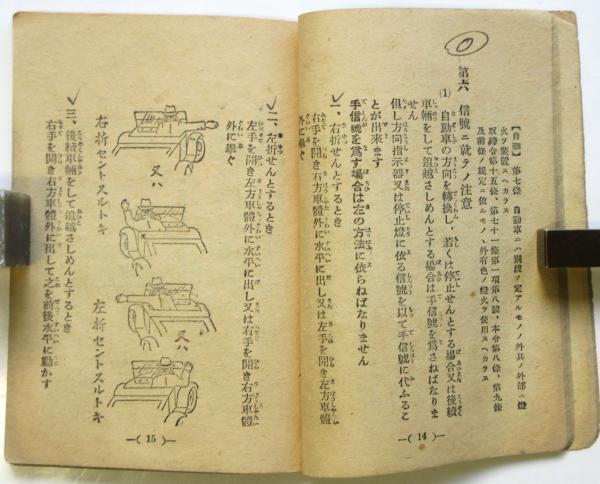 【自取】第七條 自動車ニハ別段ノ定アルモノノ外其ノ外部ニ燈
火ヲ裝置スヘカラス
取締令第十五條、第七十一條第一項第八號、本令第八條、第九條
及前條ノ規定ニ依ルモノノ外有色ノ燈火ヲ使用スヘカラス
第六 信號ニ就テノ注意
(1) 自動車の方向を轉換し、若くは停止せんとする場合又は後續
車輛をして追越さしめんとする場合は手信號を爲さねばなりま
せん
但し方向指示器又は停止燈に依る信號を以て手信號に代ふるこ
とが出來ます
手信號を爲す場合は左の方法に依らねばなりません
一、右折せんとするとき
右手を開き右方車體外に水平に出し又は左手を開き左方車體
外に擧ぐ
—( 14 )—
二、左折せんとするとき
左手を開き左方車體外に水平に出し又は右手を開き右方車體
外に擧ぐ
右折セントスルトキ
又ハ
左折セントスルトキ
又ハ
三、後續車輛をして追越さしめんとするとき
右手を開き右方車體外に出して之を前後水平に動かす
—( 15 )—